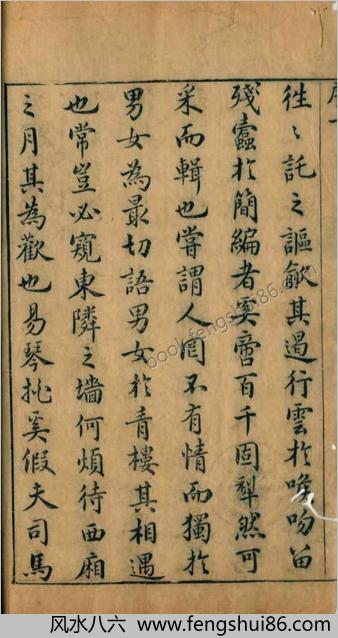 序一
徃〻託之謳歈其遏行雲於喉吻留
殘蠹於簡編者奚啻百千固犁然可
采而輯也嘗謂人罔不有情而獨於
男女為最切語男女於青樓其相遇
也常豈必窺東隣之墻何煩待西廂
之月其為歡也易琴挑奚假夫司馬
book.fengshui86.com
风水八六 www.fengshui86.com